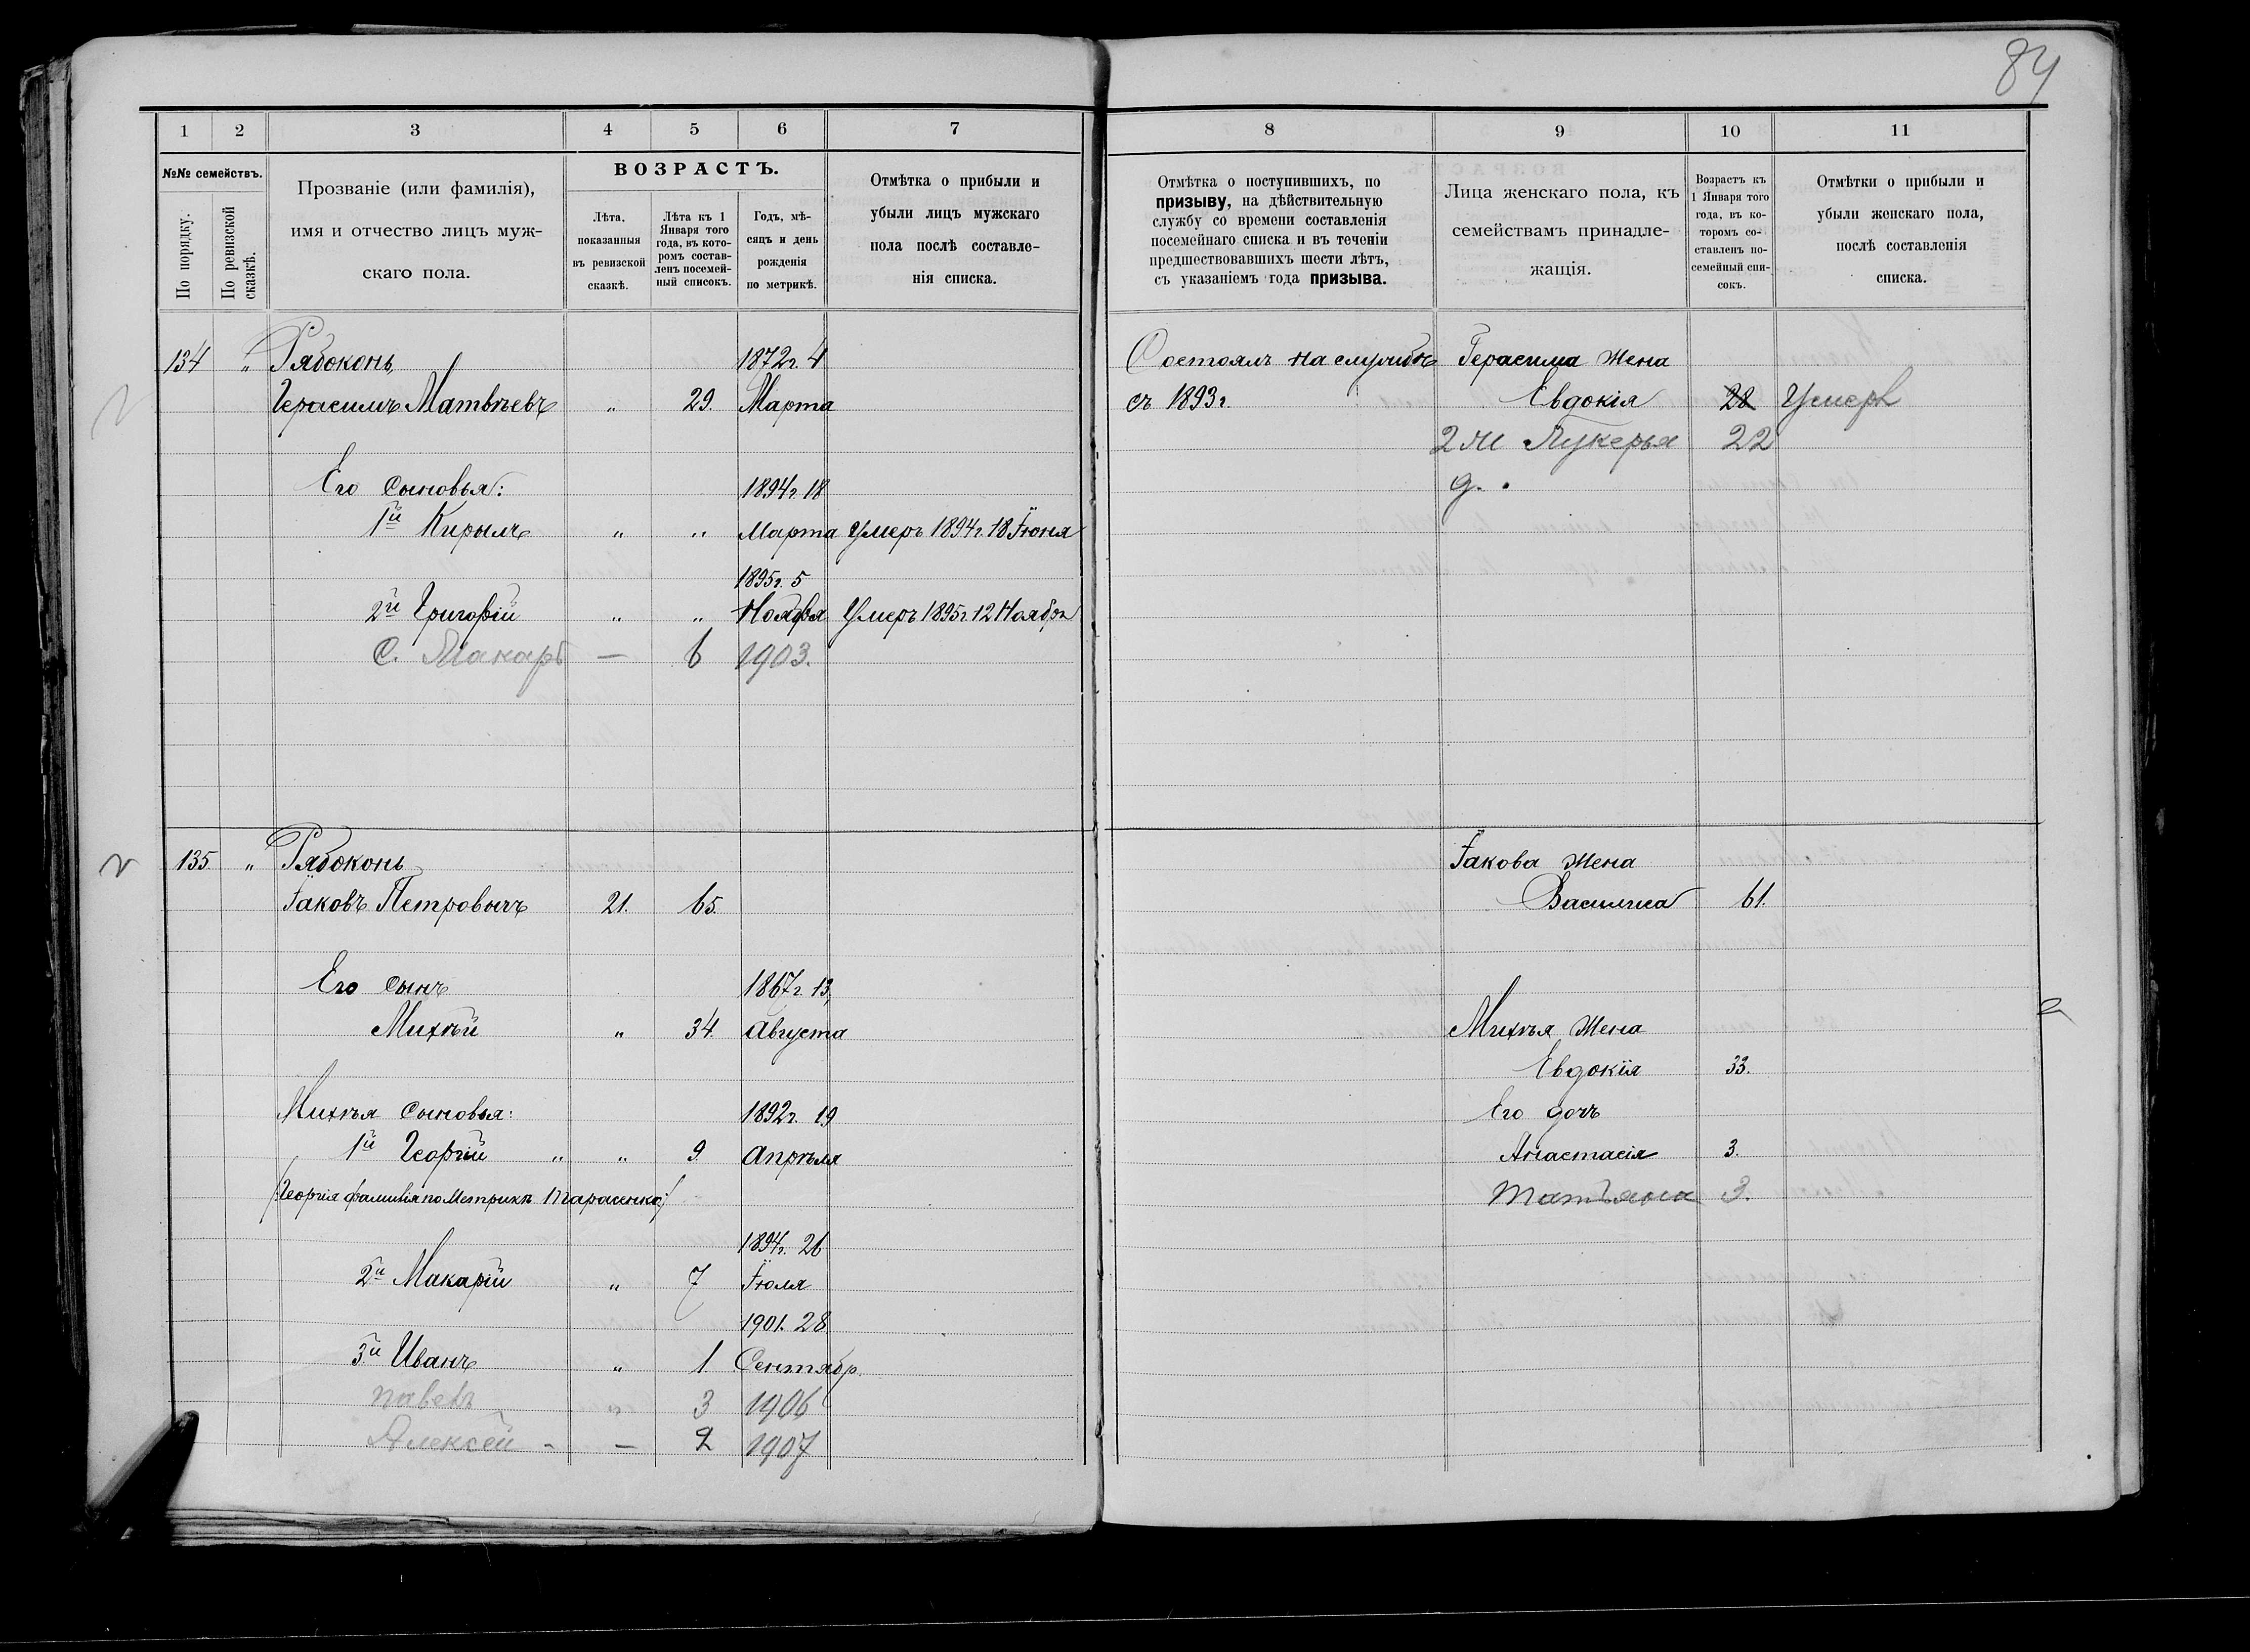 84
1 2 3 4 5 6 7
№№ семействъ.
По порядку.
По ревизской сказкѣ.
Прозваніе (или фамилія),
имя и отчество лицъ муж-
скаго пола.
ВОЗРАСТЪ.
Лѣта,
показанныя
въ ревизской
сказкѣ.
Лѣта къ 1
Января того
года, въ кото-
ромъ состав-
ленъ посемей-
ный списокъ.
Годъ, мѣ-
сяцъ и день
рожденія
по метрикѣ.
Отмѣтка о прибыли и
убыли лицъ мужскаго
пола послѣ составле-
нія списка.
134 „ Рябоконь 1872г. 4
Герасимъ Матвѣевъ „ 29. Марта
Его сыновья: 1894г. 18
1й Кирылъ „ „ Марта Умеръ 1894г. 18 Іюня
1895г. 5
2й Григорій „ „ Ноября Умеръ 1895г. 12 Ноября
С. Макаръ — 6 1903.
135 „ Рябоконь
Іаковъ Петровичъ 21. 65.
Его сынъ 1867г. 13
Михѣй „ 34. Августа
Михѣя сыновья: 1892г. 19
1й Георгій „ „ 9. Апрѣля
/Георгія фамилія по Метрикѣ Тарасенко/
1894г. 26
2й Макарій „ 7 Іюля
1901. 28
3й Иванъ „ 1 Сентябр.
Павелъ „ 3 1906
Алексей - — 2 1907
8 9 10 11
Отмѣтка о поступившихъ, по
призыву, на дѣйствительную
службу со времени составленія
посемейнаго списка и въ теченіи
предшествовавшихъ шести лѣтъ,
съ указаніемъ года призыва.
Лица женскаго пола, къ
семействамъ принадле-
жащія.
Возрастъ къ
1 Января того
года, въ ко-
торомъ со-
ставленъ по-
семейный спи-
сокъ.
Отмѣтки о прибыли и
убыли женскаго пола,
послѣ составленія
списка.
Состоялъ на службѣ Герасима жена
съ 1893г. Евдокія 28 Умерл
2 ж Лукерья 22
д. .
Іакова жена
Василиса 61.
Михѣя жена
Евдокія 33.
Его дочь
Анастасія 3.
Татьяна 3.